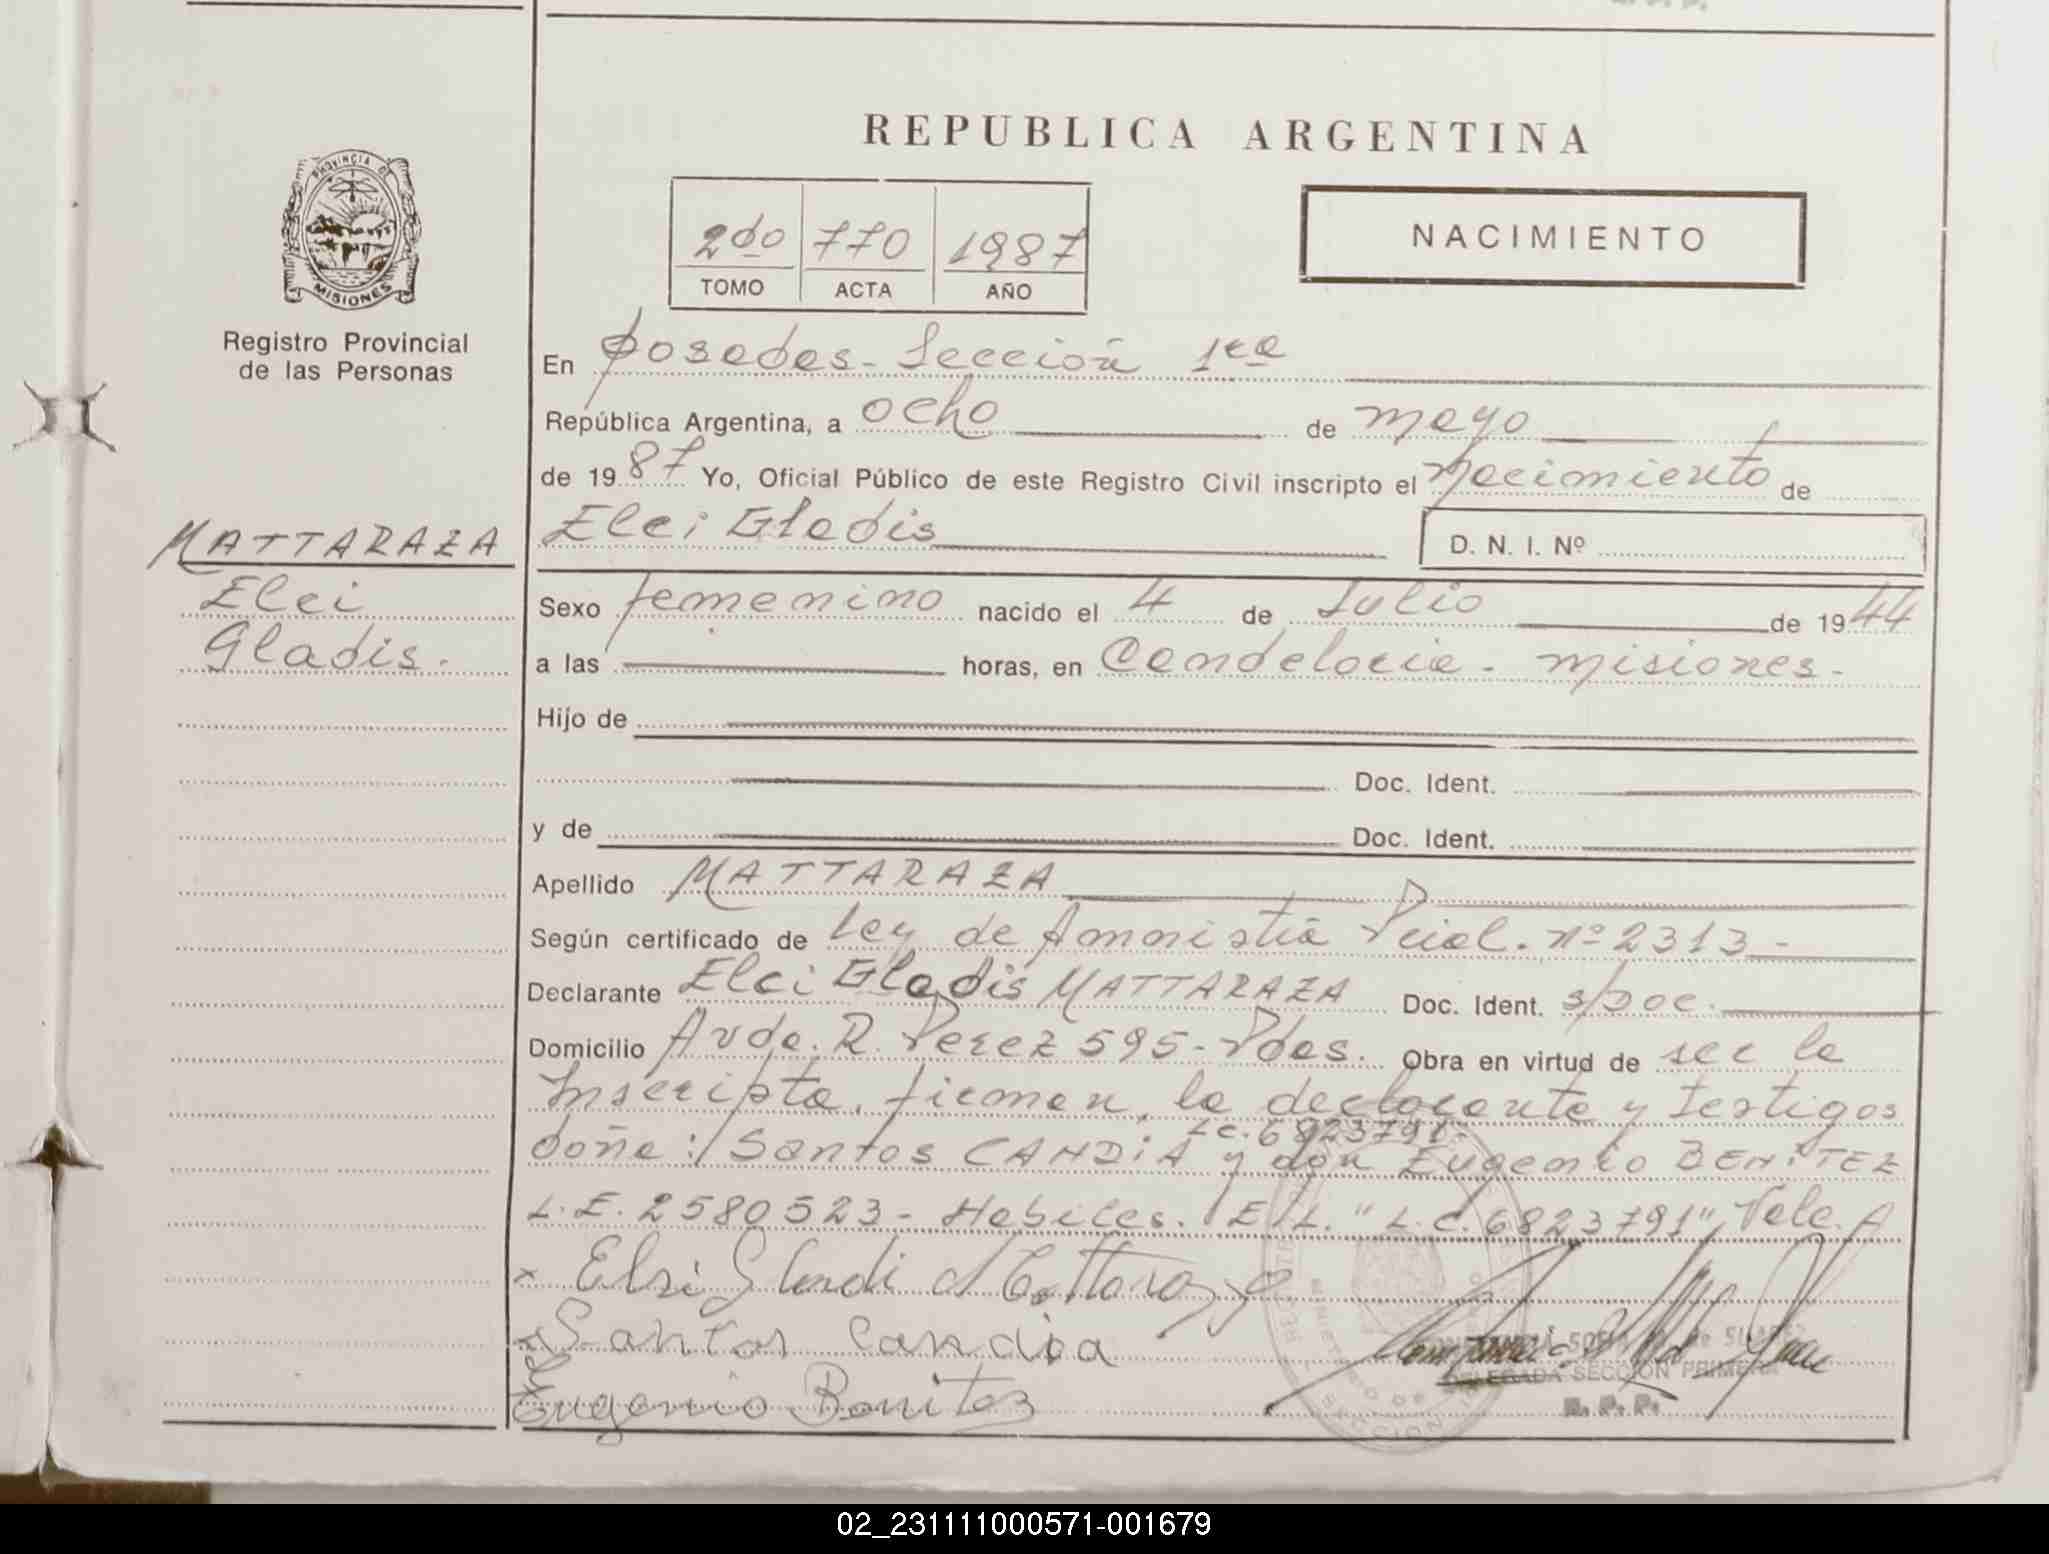 REPUBLICA ARGENTINA
PROVINCIA DE
MISIONES
Registro Provincial
de las Personas
2do 770 1987
TOMO ACTA AÑO
NACIMIENTO
En Posadas - Sección 1ra
República Argentina, a ocho de mayo
de 1987 Yo, Oficial Público de este Registro Civil inscripto el Nacimiento de
MATTARAZA
Elci Gladis
D. N. I. Nº
Elci
Gladis.
Sexo femenino nacido el 4 de Julio de 1944
a las horas, en Candelaria - Misiones -
Hijo de
Doc. Ident.
y de Doc. Ident.
Apellido MATTARAZA
Según certificado de Ley de Amnistía Pcial. nº 2313 -
Declarante Elci Gladis MATTARAZA Doc. Ident. s/Doc.
Domicilio Avda. R. Perez 595 - Pdas. Obra en virtud de ser la
Inscripta, firman, la declarante y testigos
L.C. 6823791 -
doña :/ Santos CANDiA y don Eugenio BENiTEZ
L.E. 2580523 - Habiles. E/L. "L.C. 6823791", Vale.
Elsi Gladi Mattarazo
Santos Candia
Eugenio Benitez
DELEGADA SECCION PRIMERA
R. P. P.
02_231111000571-001679